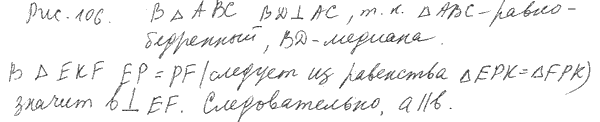 Рис. 106. В △ ABC BD⊥AC, т.к. △ABC-равно-
бедренный, BD-медиана.
В △ EKF EP = PF (следует из равенства △EPK=△FPK)
значит b⊥EF. Следовательно, a||b.